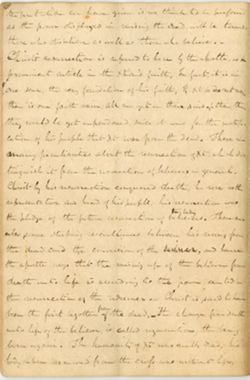 as the power displayed in raising the dead will be turned
those who disbelieve as well as those who believe.
Christ's resurrection is referred to here by the apostle, as a
prominent article in the Christian's faith, In fact, it is in
one sense, the very foundation of his faith, If Xt is not risen
then is our faith vain, all are yet in their sins, altho
they could be yet unpardoned since it was for the justifi-
cation of his people that Xt rose from the dead. There are
many peculiarities about the resurrection of Xt which dis-
tinguish it from the resurrection of believers in general.
Christ by his resurrection conquered death, he rose as the
representative and head of his people, his resurrection was
the pledge of the future resurrection of the body of believers. There are
also some striking resemblances between his rising from
the dead and the conversion of the sinner, and hence
the apostle says that the raising up of the believer from
death unto life is according to the power exerted in
the resurrection of the redeemer. Christ is said to have
been the first begotten from the dead. The change from death
unto life of the believer, is called regeneration, the being
born again. The humanity of Xt was really dead, his
body when removed from the cross was without life,